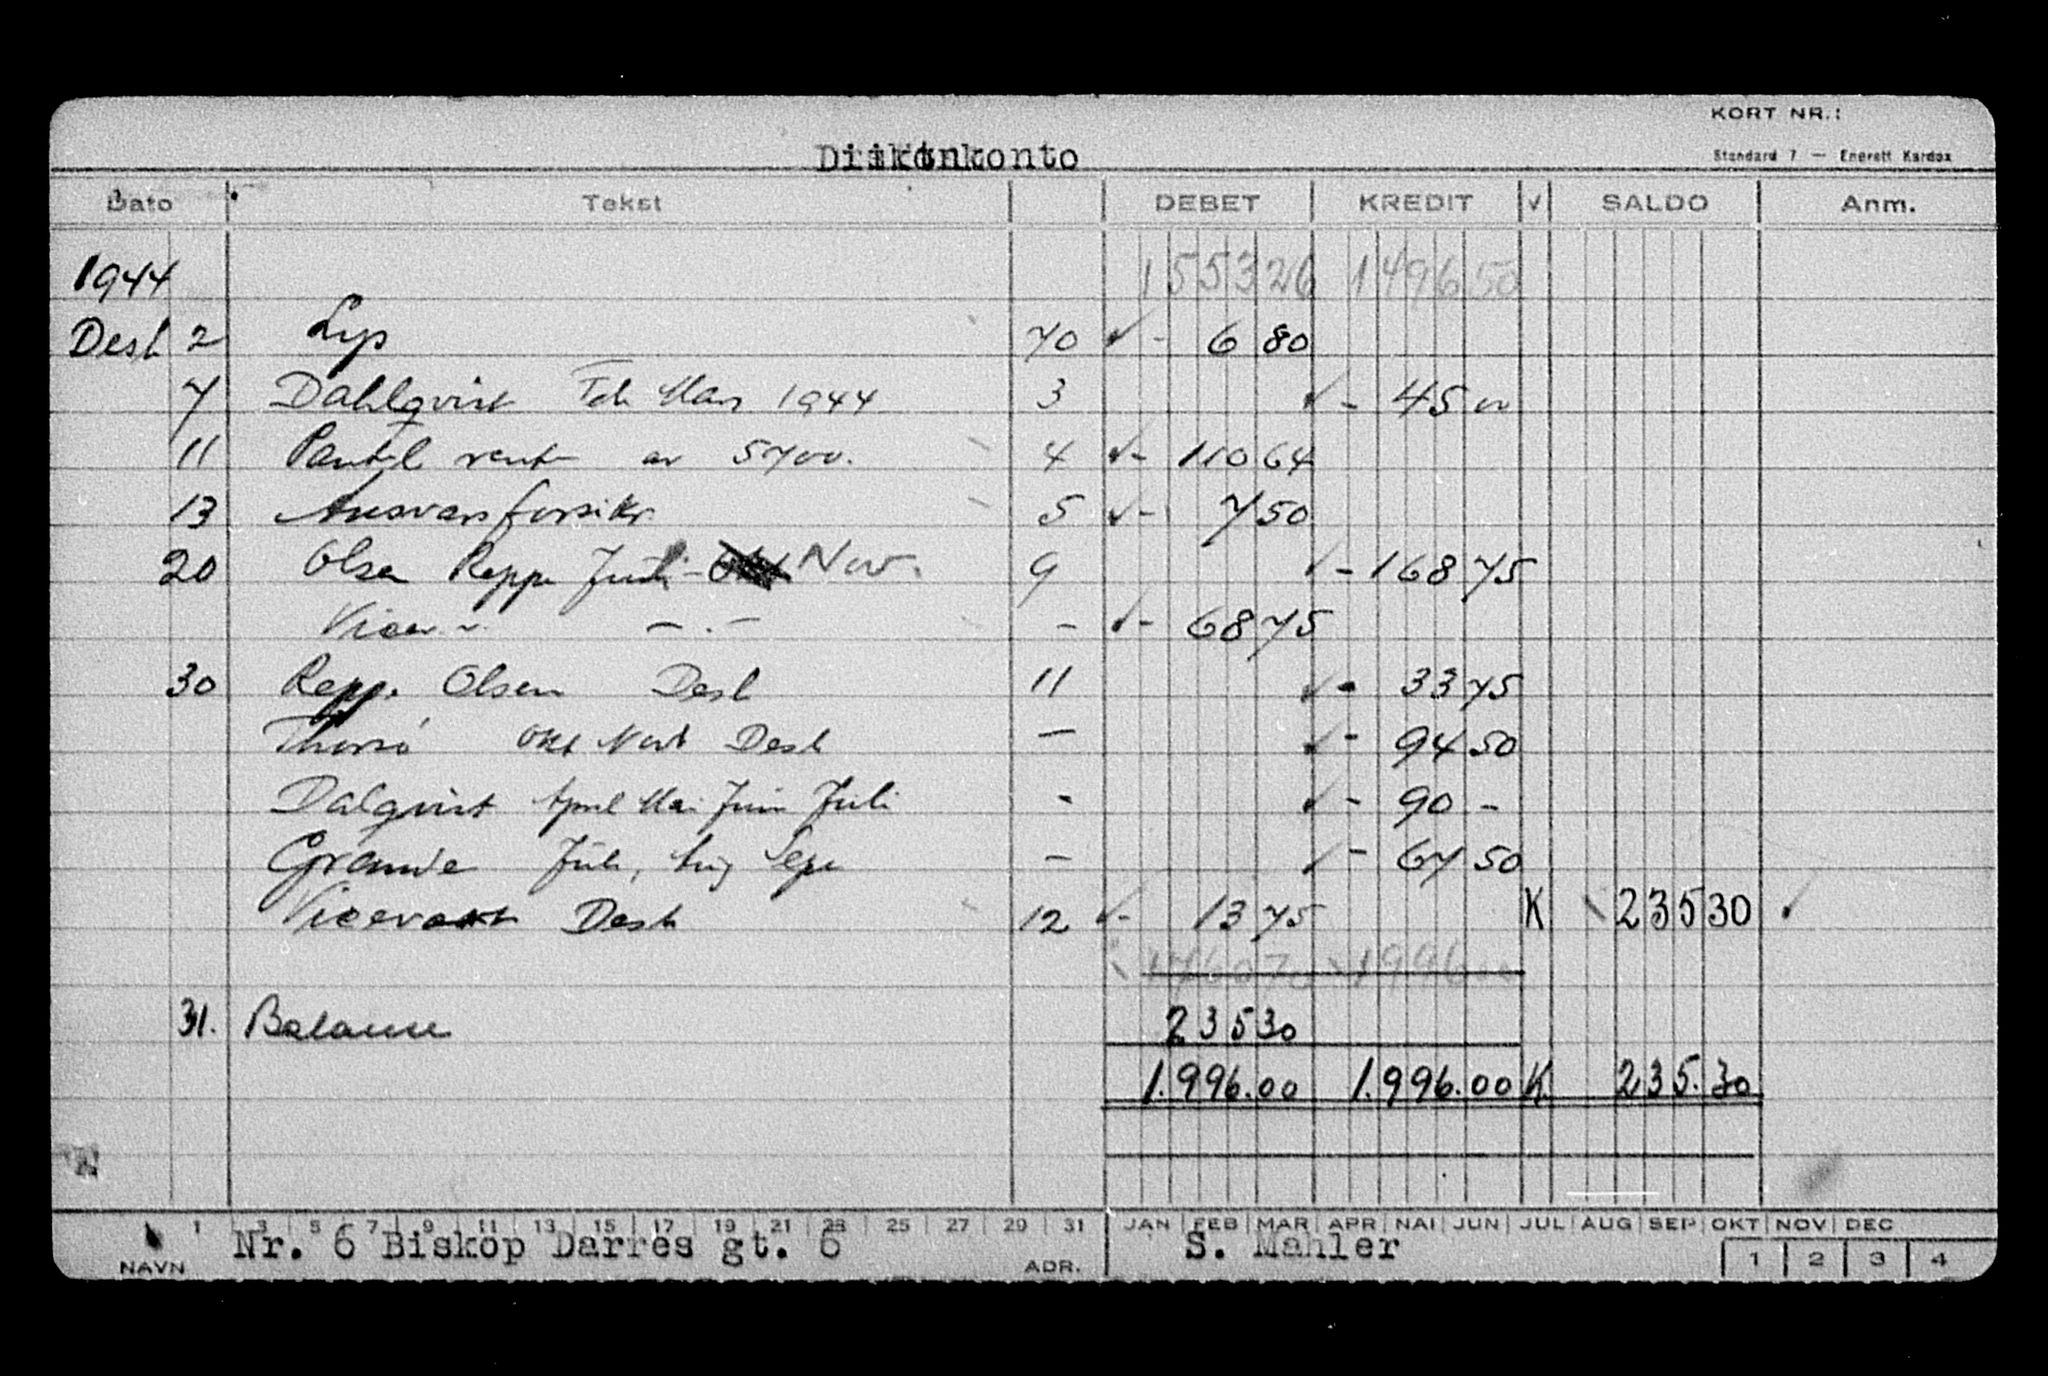 KORT NR.:
Standard 7 — Enerett Kardex
Dato Tekst DEBET KREDIT √ SALDO Anm.
1944 1553 26 1496.50
Des 2 Lys 70 ✓ - 6 80
7 Dahlqvist Feb Mars 1944 3 ✓ - 45 00
11 Pantel rent av 5700. 4 ✓ - 110 64
13 Ansvarsforsikr 5 ✓ - 7 50
20 Olsen Repp Juli - Nov. 9 ✓ - 168 75
Vicev. — . — - ✓ - 68 75
30 Repp. Olsen Des 11 ✓ - 33 75
Okt Nov Des — ✓ - 94 50
Dalqvist April Mai Juni Juli - ✓ - 90 -
Juli, Aug Sept — ✓ - 67 50
Vicevakt Des 12 ✓ - 13 75 K 235 30 ✓
1760 70 1996
31. Balanse 235 30
1.996.00 1.996.00 K. 235.30
1 3 5 7 9 11 13 15 17 19 21 23 25 27 29 31 JAN FEB MAR APR MAI JUN JUL AUG SEP OKT NOV DEC
NAVN Nr. 6 Biskop Darres gt. 6 ADR. S. Mahler 1 2 3 4